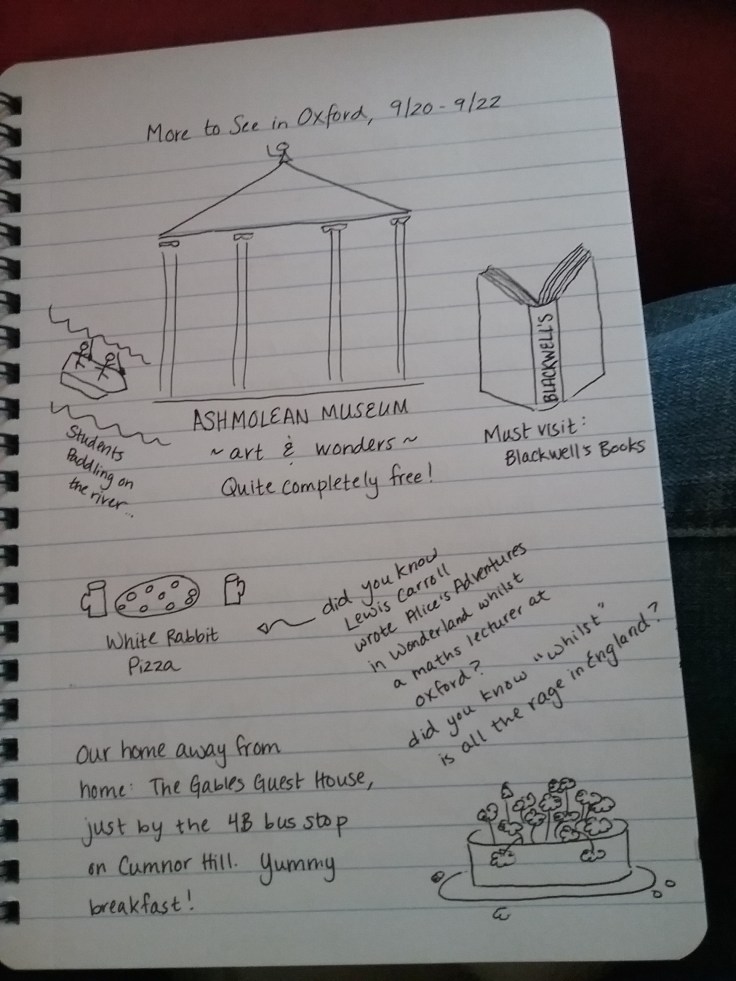 More to See in Oxford, 9/20 - 9/22
ASHMOLEAN MUSEUM
~ art & wonders ~
Quite completely free!
BLACKWELL'S
Must visit:
Blackwell's Books
Students
Paddling on
the river...
White Rabbit
Pizza
did you know
Lewis Carroll
wrote Alice's Adventures
in Wonderland whilst
a maths lecturer at
oxford?
did you know "whilst"
is all the rage in England?
Our home away from
home: The Gables Guest House,
just by the 4B bus stop
on Cumnor Hill. Yummy
breakfast!